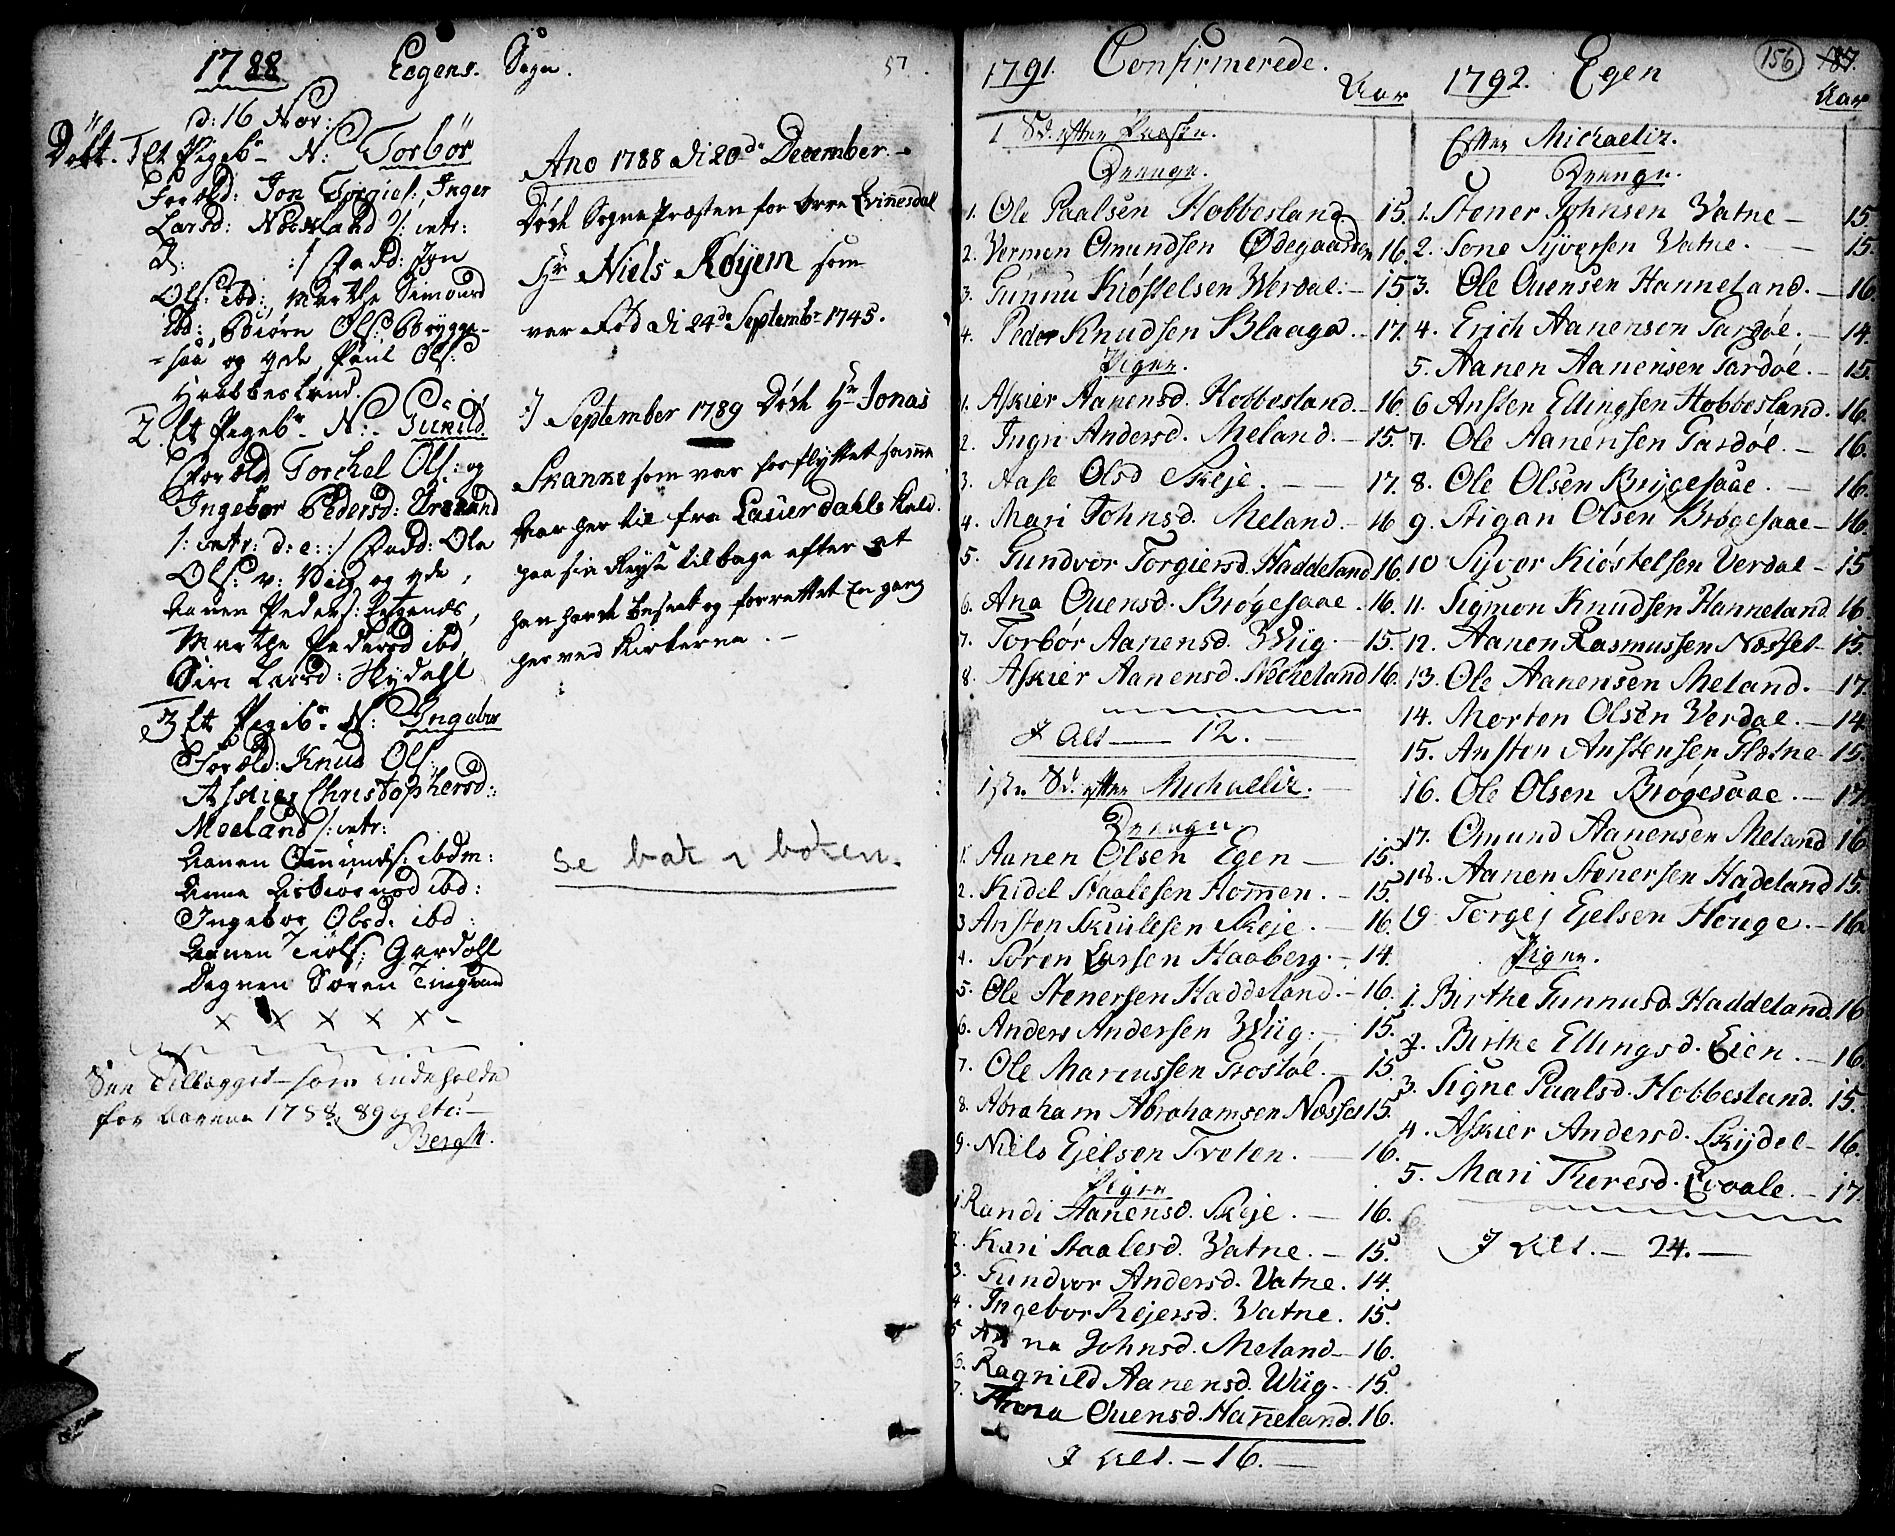 1788 Eegens. Sogn. 57.
d: 16 Nov:
Døbt. 1 Et Pigeb. N: Torbør
Foræld: Jon Torgiels:, Inger
Larsd: Noekland /: intr:
d: :/ Fadd: Jon
Ols: ibd:, Marthe Simonsd
ibd:, Biørn Ols: Brygge-
=saa og yde, Paul Ols:
Haabbesland.
2. Et Pigeb. N:. Gunild.
Foræld Torchel Ols: og
Ingebor Pedersd:
/: intr: d: e: :/ Fadd: Ole
Ols: v: Viig og yde,
Aanen Peders: Eegenes,
Marthe Pedersd ibd,
Siri Larsd: Skydahl
3 Et Pigeb. N: Ingebor
Foræld: Knud Ols:
Askier Christophersd:
Meeland /: intr:
Aanen Omunds: ibdm:
Anna Asbiørnsd ibd:
Ingebor Olsd. ibd:
Aanen Tiøls: Gardøll
Degnen Søren Tingvand
x x x x x -
See Tillægget som indeholde
for Aarene 1788, 89 og etc: -
Bergh.
Ano 1788 di 20de December. -
Døde Sogne Præsten for Øvre Qvinesdal
Hr Niels Røyem som
var Fød di 24de Septembr 1745.
:/ September 1789 Døde Hr Jonas
Skanke som var forflyttet samme
Aar her til fra Lauerdahls Kald.
paa sin Reyse tilbage efter at
han havde besøgt og forrettet En gang
her ved Kirkerne. -
Se bak i boken.
1791. Confirmerede. Aar
1 Sd. efter Paaske.
Drenge.
1. Ole Paalsen Hobbesland 15.
2. Vermen Omundsen Ødegaarden 16.
3. Gunnu Kiøstelsen Werdal: - 15
4. Peder Knudsen Blaaga. - 17.
Piger.
1. Askier Aanensd. Hobbesland. - 16.
2. Ingri Andersd. Meland. - 15.
3. Aase Olsd Skeje. - - 17.
4. Mari Johnsd. Meland. - 16
5. Gundvor Torgiersd. Haddeland 16.
6. Ana Ouensd. Brøgesaae. - 16.
7. Torbør Aanensd. Wiig. - 15.
8. Askier Aanensd. Nockeland 16.
I Alt - 12. -
1ste Sd. efter Michaelis. -
Drenge.
1. Aanen Olsen Egen - 15.
2. Kidel Staalesen Hommen. - 15.
3 Ansten Skuulesen Skeje. - 16.
4. Søren Larsen Haaberg. - 14.
5. Ole Stenersen Haddeland. - 16.
6. Anders Andersen Wiig. - 15.
7. Ole Marcussen Frøstøl. - 15
8. Abraham Abrahamsen Næsset 15.
9. Niels Ejelsen Tveten. - 16.
Piger
1. Randi Aanensd. Skeje. - 16.
2. Kari Staalesd. Vatne. - 15.
3. Gundvor Andersd. Vatne. 14.
4. Ingebor Rejersd. Vatne. 15.
5 Anna Johnsd. Meland - 16.
6. Ragnild Aanensd. Wiig. - 15.
7. Anna Ouensd. Hanneland. 16.
I Alt. - 16. -
1792. Egen 156 187. Aar
Efter Michaelis.
Drenge.
1. Stener Johnsen Vatne - 15.
2. Tone Syversen Vatne. - 15.
3. Ole Ouensen Hanneland. - 16.
4. Erich Aanensen Gardøl. - 14.
5. Aanen Aanensen Gardøl. - 15.
6 Ansten Ellingsen Hobbesland. 16.
7. Ole Aanensen Gardøl. - 16.
8. Ole Olsen Brygesaae. - 16.
9. Stigan Olsen Brøgesaae - 16.
10 Syver Kiøstelsen Verdal - 15
11. Sigmon Knudsen Hanneland 16.
12. Aanen Rasmussen Næsset - 15.
13. Ole Aanensen Meland. - 17.
14. Morten Olsen Verdal. - 14.
15. Ansten Anstensen Flætne - 15.
16. Ole Olsen Brøgesaae. - 17.
17. Omund Aanensen Meland 16
18. Aanen Stenersen Hadeland 15.
19 Torgej Ejelsen Houge. - 16.
Piger.
1. Birthe Gunnusd. Haddeland. 16
2. Birthe Ellingsd. Lien. - 16.
3. Signe Paalsd. Hobbesland. 15.
4. Askier Andersd. Skijdel - 16.
5. Mari Theresd. Qvoale. - 17.
I Alt. - 24. -